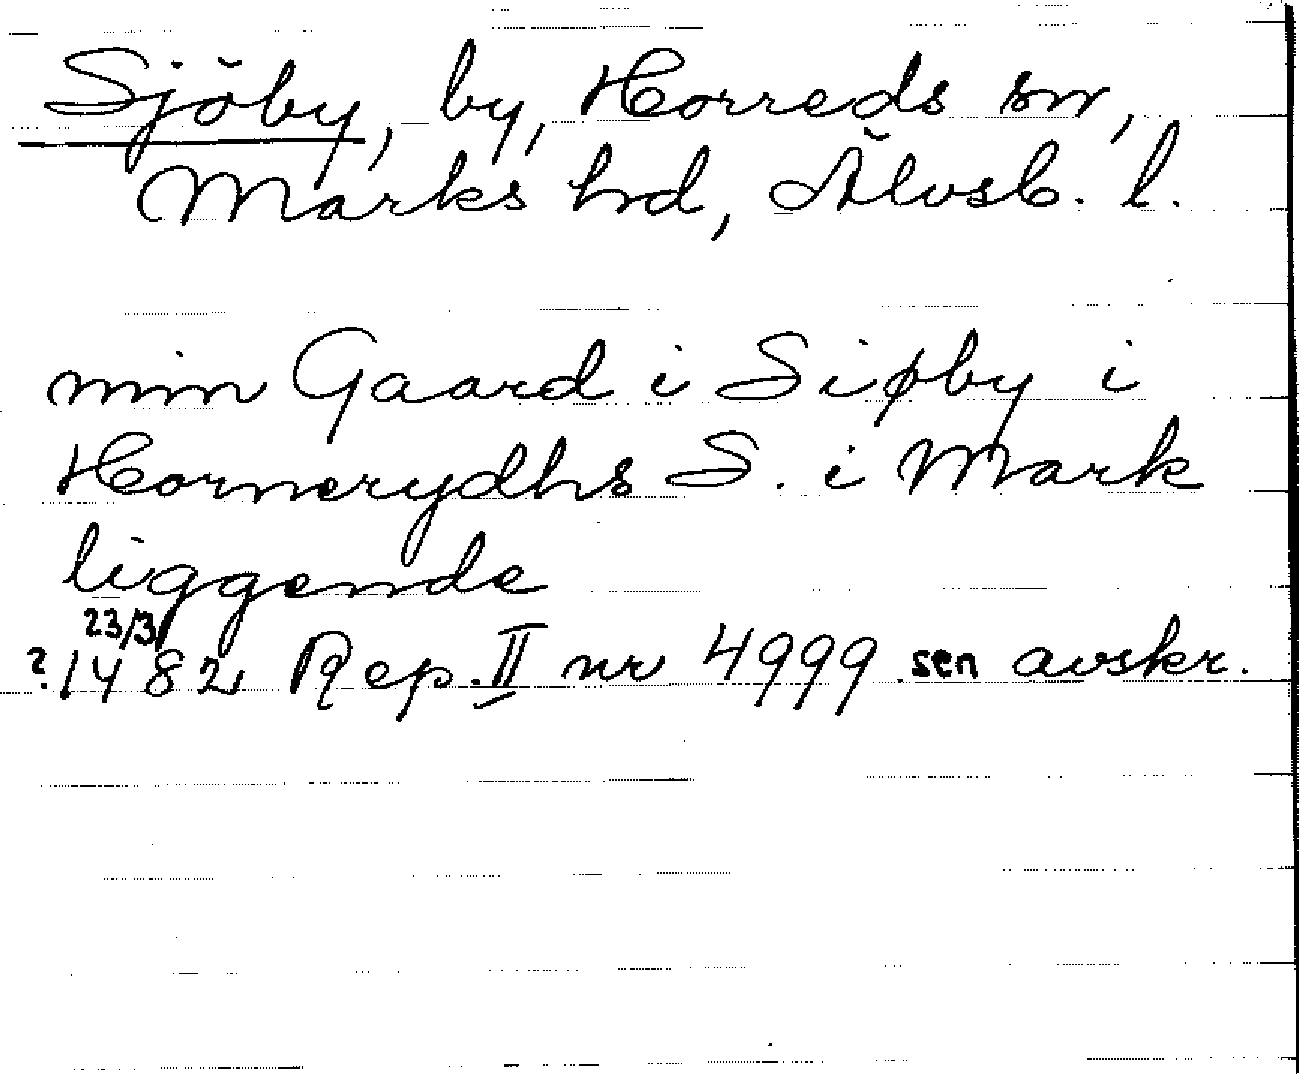 Sjöby, by, Horreds sn,
Marks hd, Älvsb. l.
min Gaard i Siøby i
Hornerydhs S. i Mark
liggende
23/3
?1482 Rep. II nr 4999 sen avskr.